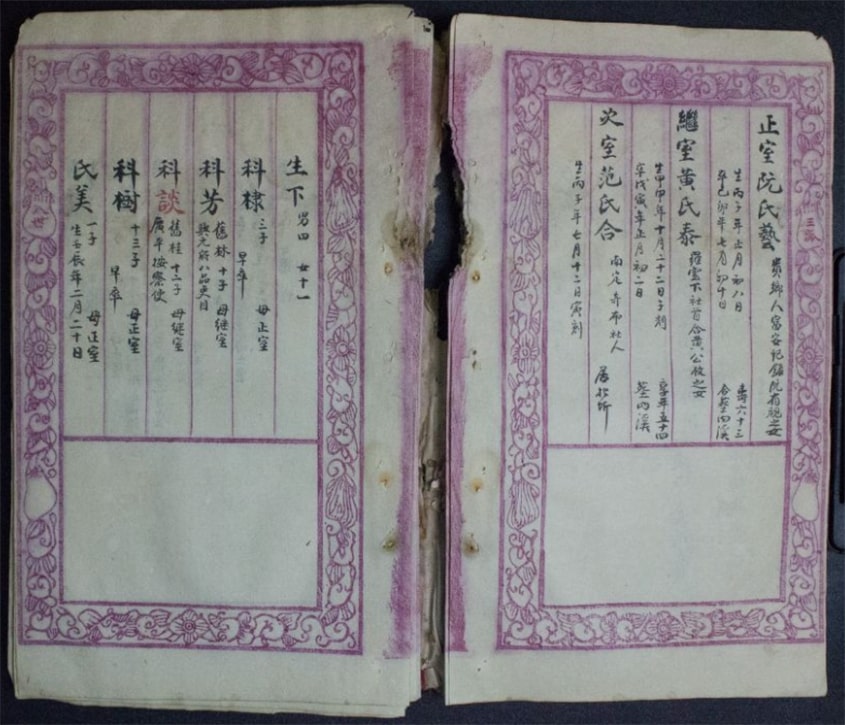 正室阮氏藝 貴鄉人富安記錄阮有之女
生丙子年正月初八日 壽六十三
卒己卯年七月初十日 合塟內溪
繼室黃氏泰 羅雲下社首合黃公枚之女
生甲申年十月二十二日子刻 享年五十四
卒戊寅年正月初二日 塟內溪
次室范氏合 南定奇布社人
生丙子年七月十二日寅刻
生下 男四 女十一
科棣 三子 母正室
早卒
科芳 舊林 十子 母繼室
興元府八品吏目
科談 舊桂 十二子 母繼室
廣平按察使
科樹 十三子 母正室
早卒
氏美 一子 母正室
生壬辰年二月二十日